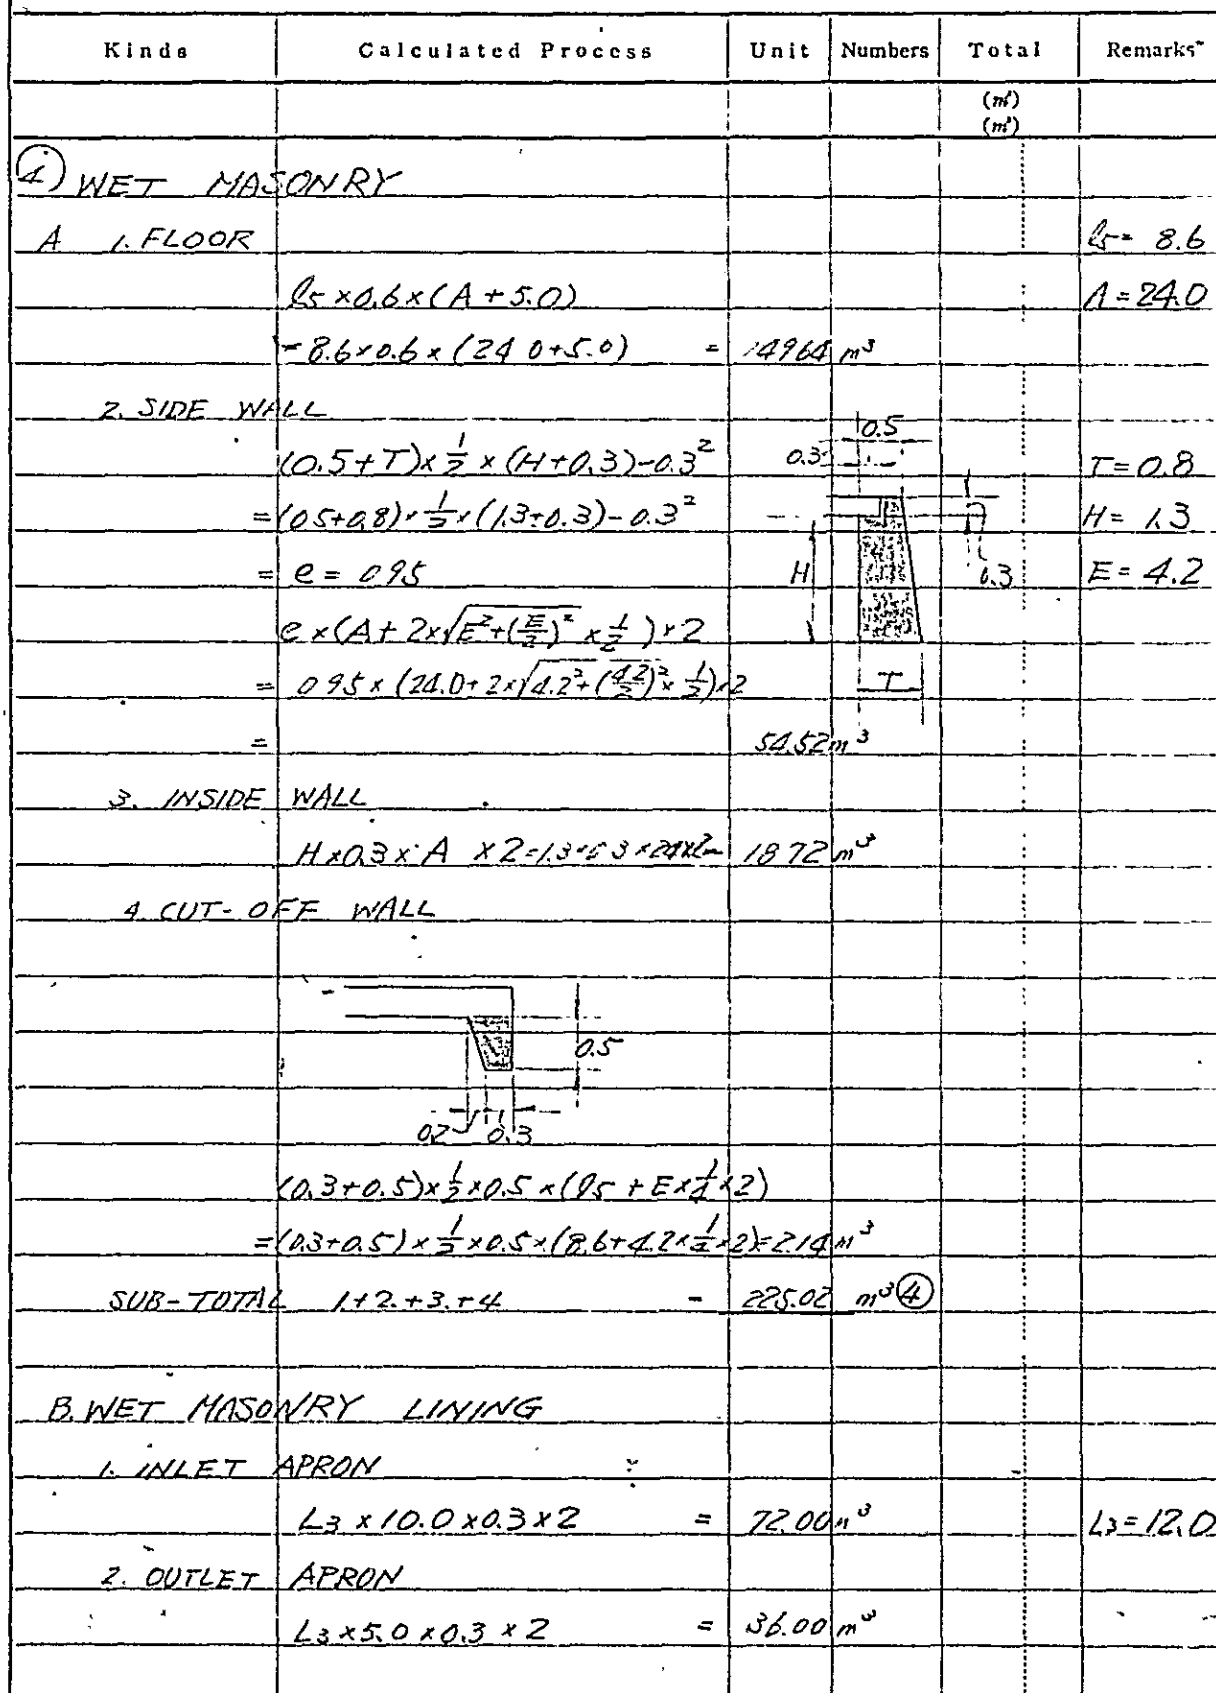 Kinds Calculated Process Unit Numbers Total Remarks
(m²)
(m³)
④ WET MASONRY
A 1. FLOOR ℓ5= 8.6
ℓ5 ×0.6×(A+5.0) A=24.0
=8.6×0.6×(24 0+5.0) = 14964 m³
2. SIDE WALL
0.5
(0.5+T)×1/2×(H+0.3)-0.3² 0.3 T=0.8
=(05+0.8)×1/2×(1.3+0.3)-0.3² H= 1.3
= e= 095 H 0.3 E= 4.2
e×(A+2×√E²+(E/2)² ×1/2)×2
= 095×(24.0+2×√4.2²+(4.2/2)²×1/2)×2 T
= 54.52m³
3. INSIDE WALL
H×0.3×A ×2=1.3×0.3×24×2= 18 72 m³
4. CUT-OFF WALL
0.5
0.2 0.3
(0.3+0.5)×1/2×0.5×(ℓ5+E×1/4×2)
=(0.3+0.5)×1/2×0.5×(8.6+4.2×1/4×2)=2.14m³
SUB-TOTAL 1+2.+3.+4 = 225.02 m³④
B. WET MASONRY LINING
1. INLET APRON
L3×10.0×0.3×2 = 72.00m³ L3=12.0
2. OUTLET APRON
L3×5.0×0.3×2 = 36.00 m³